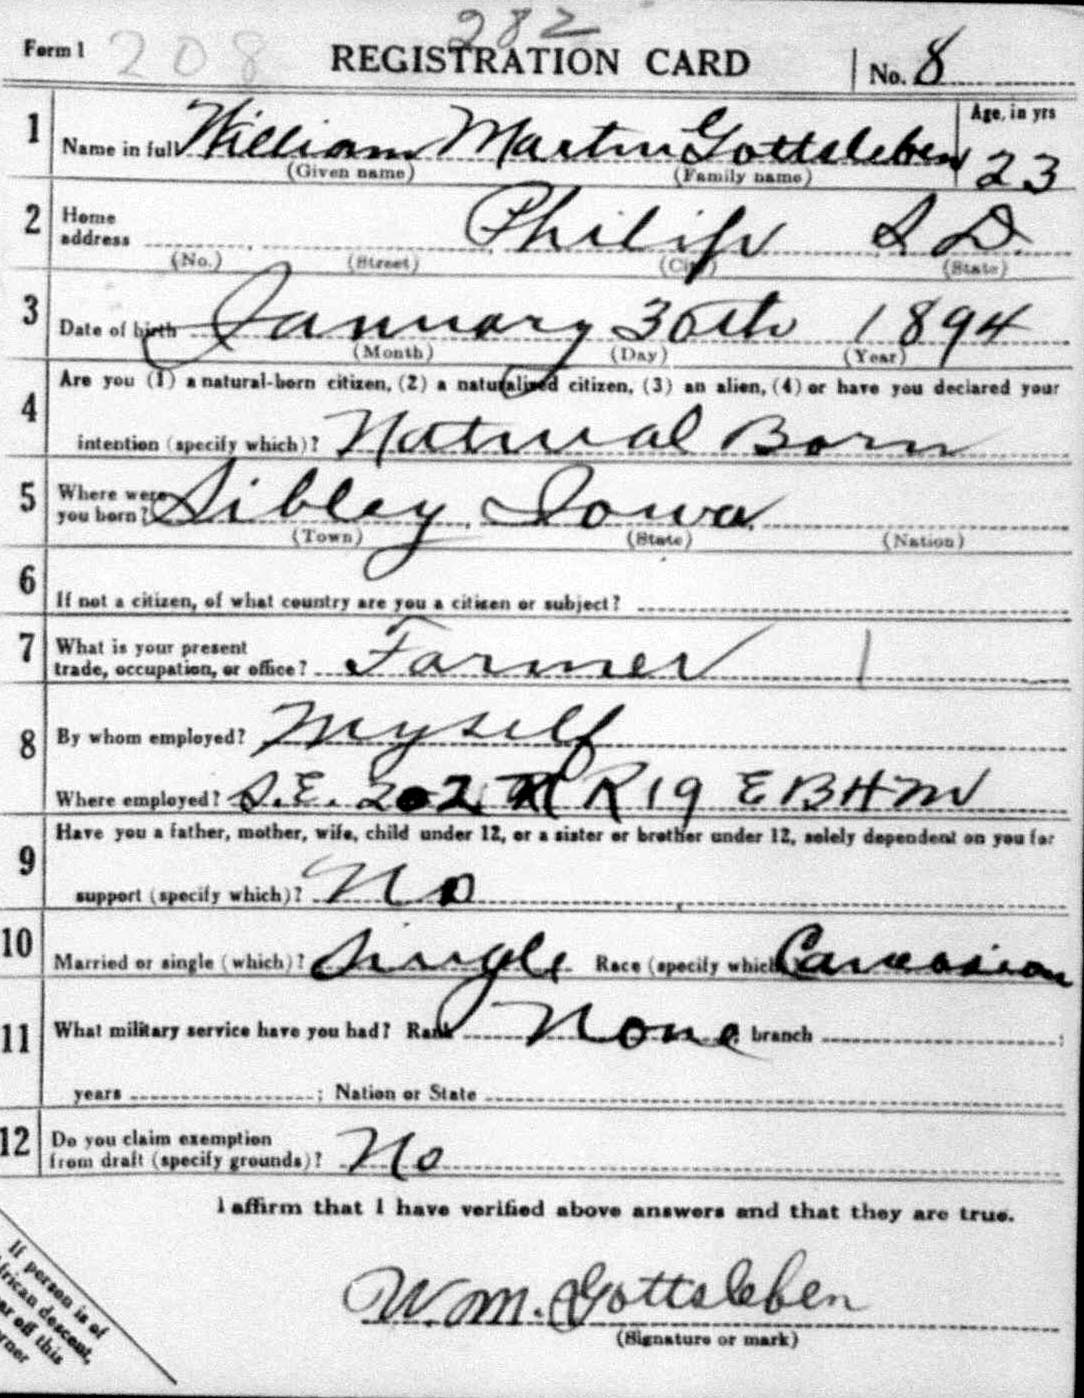 282
Form 1 208 REGISTRATION CARD No. 8
1 Name in full William Martin Gottsleben Age, in yrs 23
(Given name) (Family name)
2 Home address Philip S D.
(No.) (Street) (City) (State)
3 Date of birth January 30th 1894
(Month) (Day) (Year)
4 Are you (1) a natural-born citizen, (2) a naturalized citizen, (3) an alien, (4) or have you declared your
intention (specify which)? Natural Born
5 Where were you born? Sibley, Iowa
(Town) (State) (Nation)
6 If not a citizen, of what country are you a citizen or subject?
7 What is your present
trade, occupation, or office? Farmer
8 By whom employed? Myself
Where employed? S.E. 20 2 N R 19 E B H M
9 Have you a father, mother, wife, child under 12, or a sister or brother under 12, solely dependent on you for
support (specify which)? No
10 Married or single (which)? Single Race (specify which) Caucasian
11 What military service have you had? Rank None branch ;
years ; Nation or State
12 Do you claim exemption
from draft (specify grounds)? No
I affirm that I have verified above answers and that they are true.
W. M. Gottsleben
(Signature or mark)
If person is of
African descent,
tear off this
corner